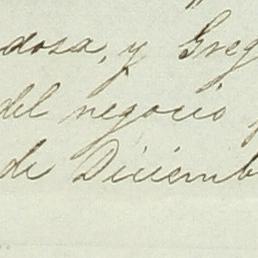 dosa, y Greg
del negocio
de Diciemb